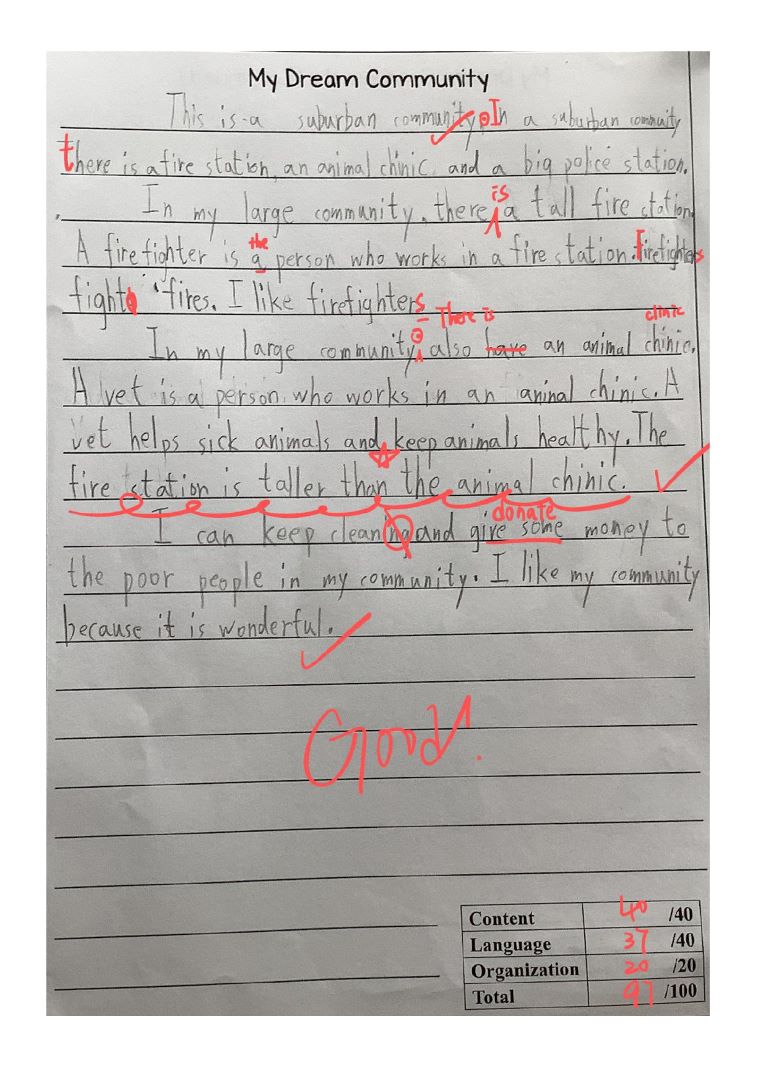 My Dream Community
This is a suburban community. In a suburban community
there is a fire station, an animal chinic and a big police station.
is
In my large community, there a tall fire station.
the
A firefighter is a person who works in a fire station. firefighters
fight fires. I like firefighters
There is clinic
In my large community, also have an animal chinic.
A vet is a person who works in an aninal chinic. A
vet helps sick animals and keep animals healthy. The
fire station is taller than the animal chinic.
donate
I can keep cleaning and give some money to
the poor people in my community. I like my community
because it is wonderful.
Good!
Content 40 /40
Language 37 /40
Organization 20 /20
Total 97 /100